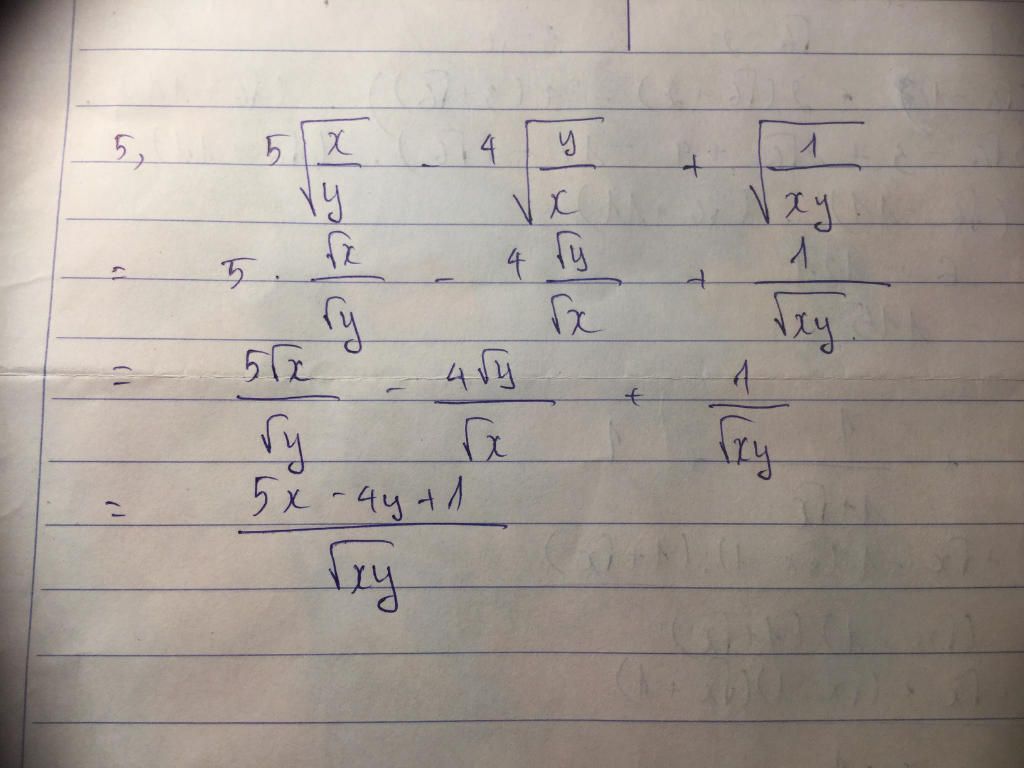 5, 5√(x/y) - 4√(y/x) + √(1/xy)
= 5 · √x/√y - 4 √y/√x + 1/√xy
= 5√x/√y - 4√y/√x + 1/√xy
= (5x - 4y + 1)/√xy